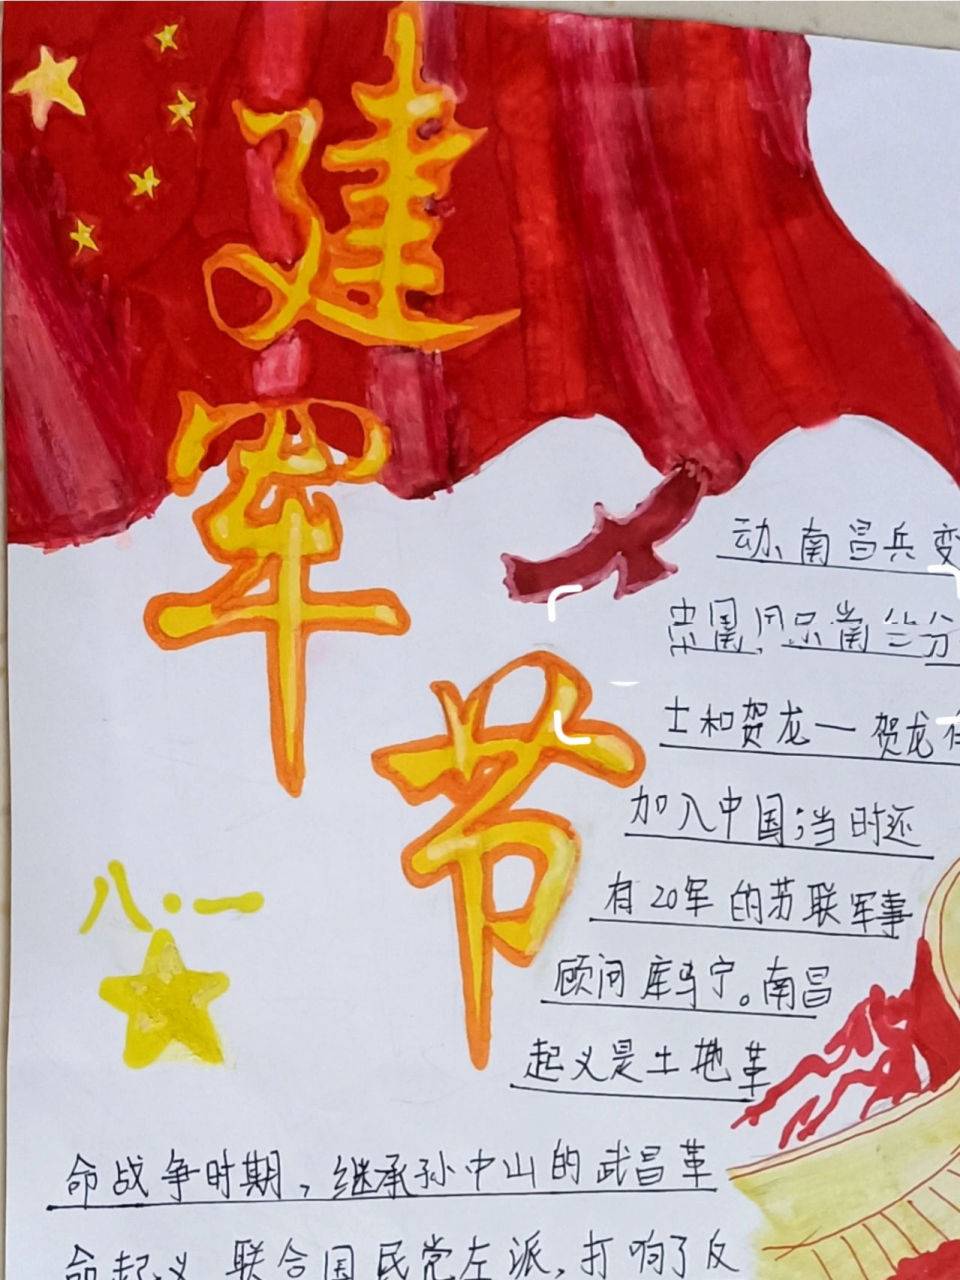 建
军
节
八·一
动、南昌兵变
士和贺龙一贺龙
加入中国;当时还
有20军的苏联军事
顾问库马宁。南昌
起义是土地革
命战争时期,继承孙中山的武昌革
命起义 联合国民党左派,打响了反